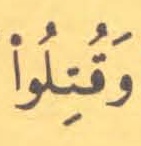 وَقُتِلُوا۟